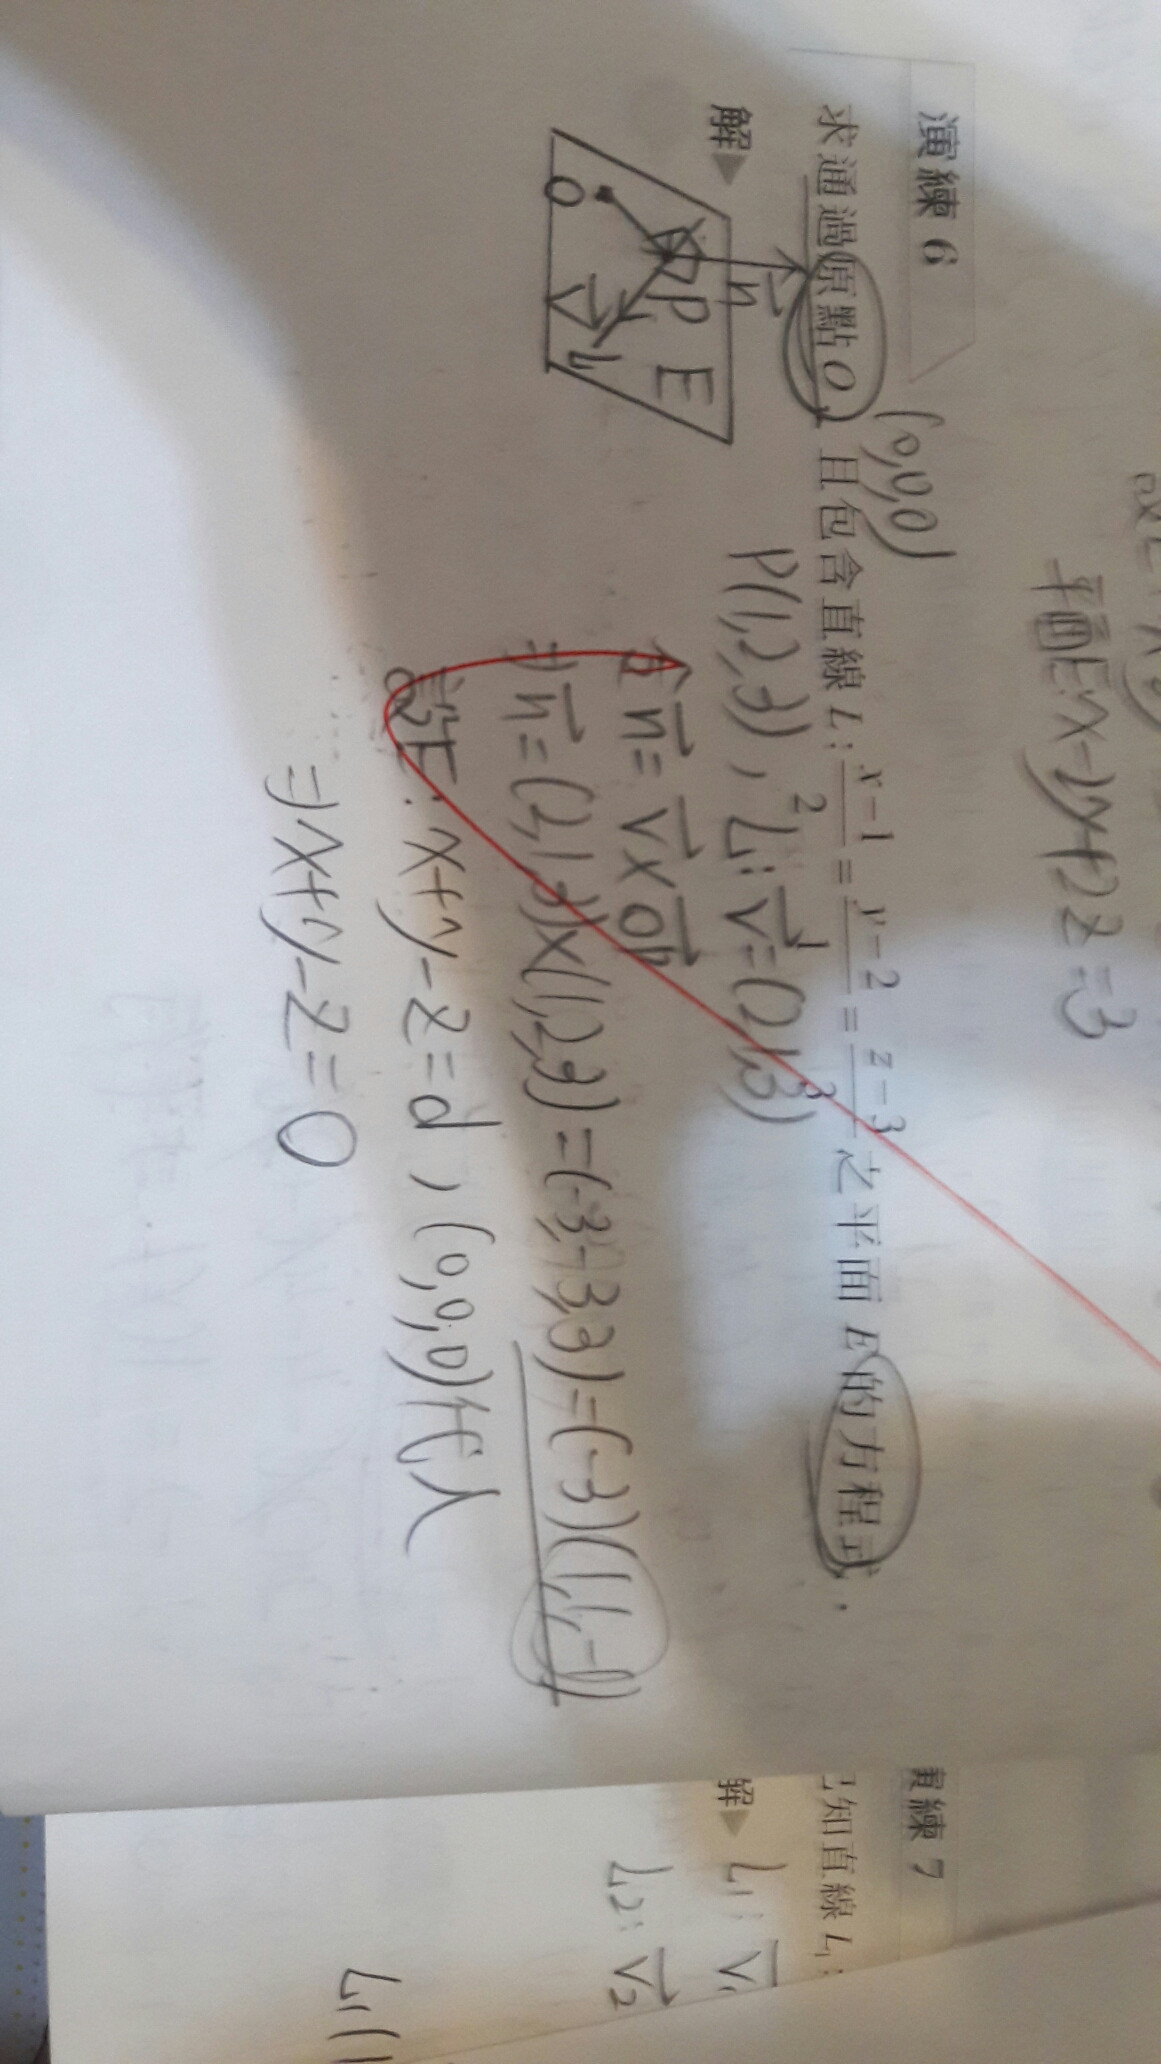 平面E:x-2y+2z=3
演練 6
(0,0,0)
求通過原點O,且包含直線 L: x-1/2 = y-2/1 = z-3/3 之平面 E 的方程式.
解▶
P(1,2,3), L: v=(2,1,3)
n = v × OP
⇒ n = (2,1,3)×(1,2,3) = (-3,-3,3) = (-3)(1,1,-1)
設E: x+y-z=d, (0,0,0)代入
⇒ x+y-z=0
n
P
E
O
v
L
演練 7
已知直線 L₁:
解▶
L₁: v₁
L₂: v₂
L₁(